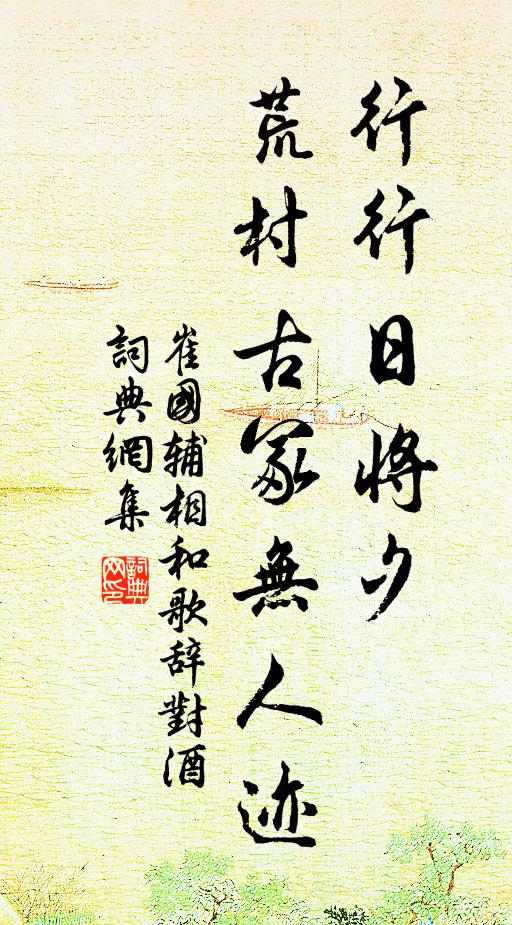 行行日將夕
荒村古冢無人迹
崔國辅相和歌辞對酒
詞典網集
詞典网印